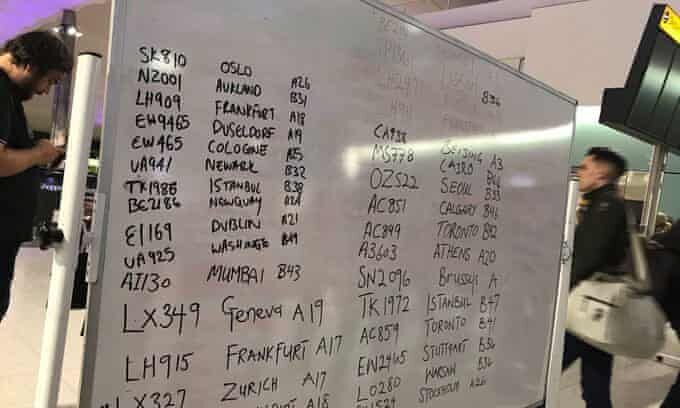 SK810 OSLO A26
NZ001 AUKLAND B31
LH909 FRANKFURT A18
EW9465 DUSELDORF A19
EW465 COLOGNE A25
UA941 NEWARK B32
TK1986 ISTANBUL B38
BE2186 NEWQUAY A24
EI169 DUBLIN A21
UA925 B49
AI130 MUMBAI B43
LX349 Geneva A19
LH915 FRANKFURT A17
LX327 ZURICH A17
A18
B36
CA938 BEIJING A3
MS778 CAIRO
OZ522 SEOUL B33
AC851 CALGARY B46
AC899 TORONTO
A3603 ATHENS A20
SN2096 A
TK1972 ISTANBUL B47
AC859 TORONTO B41
EW2465 STUTTGART B36
LO280 WARSAW B36
STOCKHOLM A26